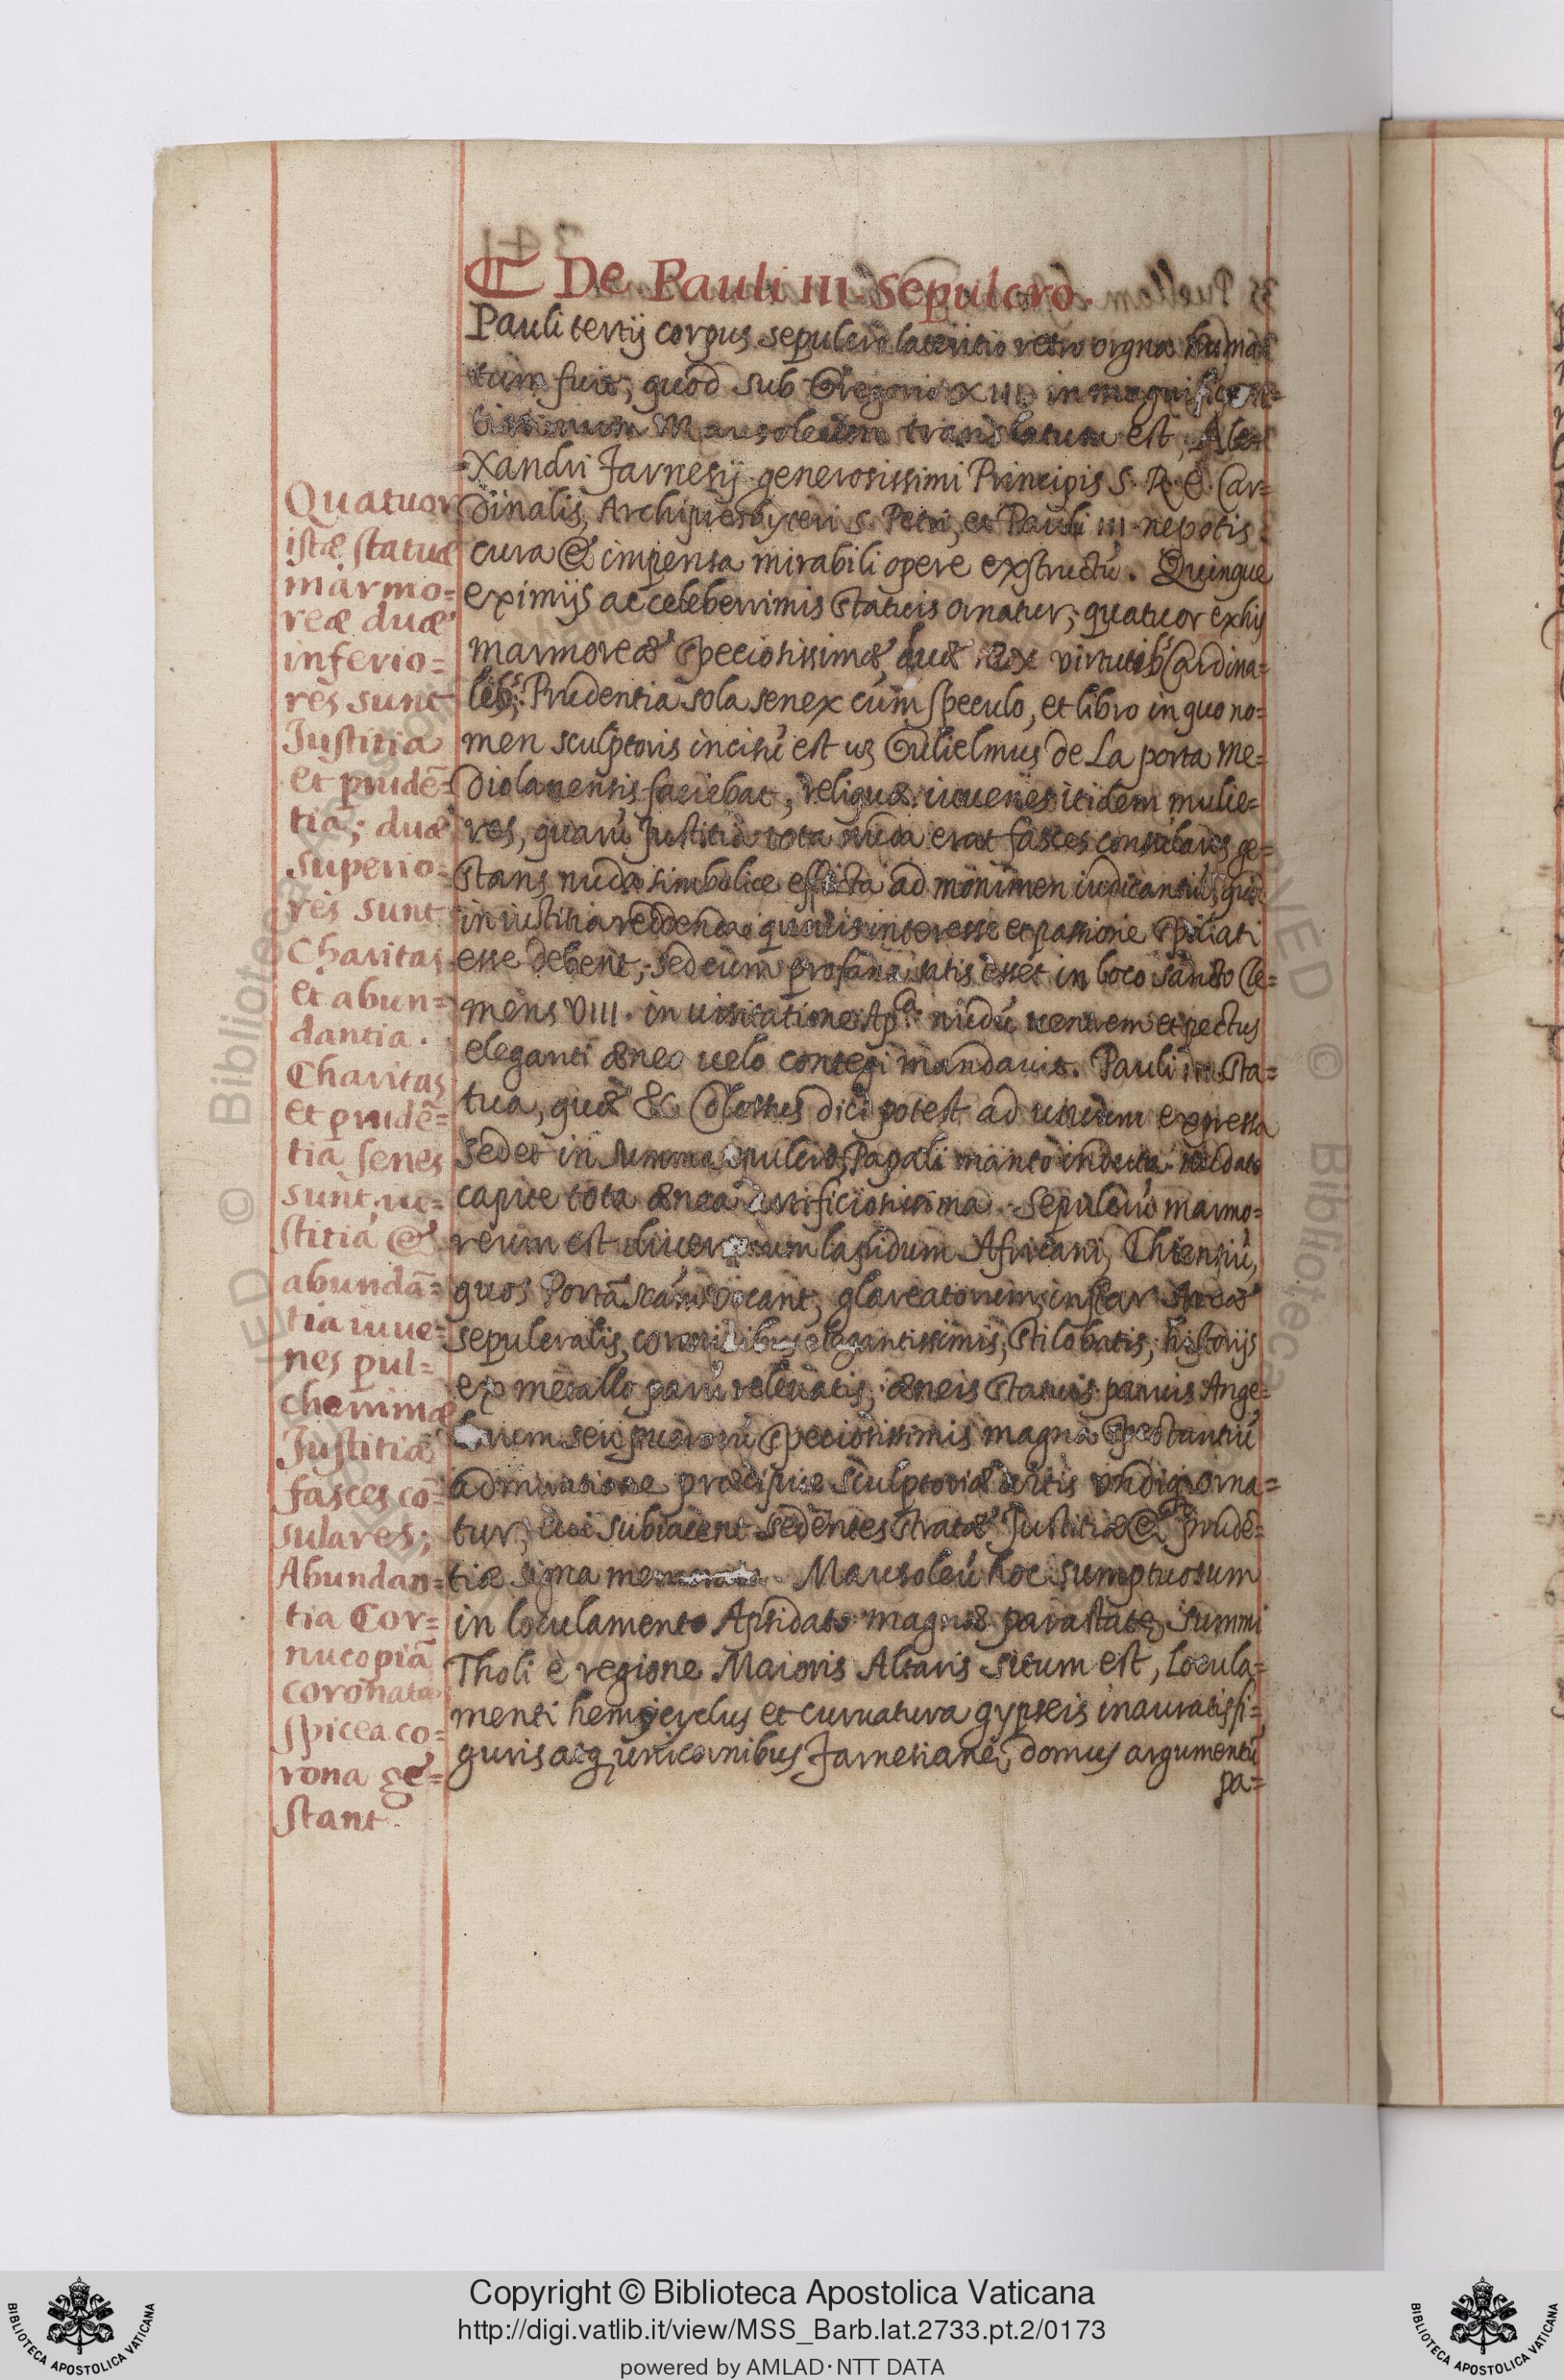 De Pauli III. Sepulcro.
Pauli tertij corpus sepulcro lateritio retro organa huma=
tum fuit; quod sub Gregorio XIII. in magnificen=
tissimum Mausoleum translatum est, Ale=
xandri Farnesij generosissimi Principis S. R. E. Car=
dinalis, Archipresbyteri S. Petri, et Pauli III nepotis
cura & impensa mirabili opere exstructū. Quinque
eximijs ac celeberrimis statuis ornatur; quatuor ex his
marmoreæ speciosissimæ, duæ ex virtutibs Cardina=
libs; Prudentia sola senex cum speculo, et libro in quo no=
men sculptoris incisū est uz Gulielmus de La porta me=
diolanensis faciebat, reliquæ iuuenes itidem mulie=
res, quarū Justitia tota nuda erat fasces consulares ge=
stans nuda simbolice efficta ad monimen iudicantiū, qui
in iustitia reddenda qualis interesse et passione spoliati
esse debent; sed cum profana satis esset in loco sancto Cle=
mens VIII. in uisitatione Aplica nudū uentrem et pectus
eleganti æneo uelo contegi mandauit. Pauli III sta=
tua, quæ & Colossus dici potest ad uiuum expressa
sedet in summo sepulcro, Papali manto induta nudato
capite tota ænea artificiosissima. Sepulcrū marmo=
reum est diuersorum lapidum Africani, Chiensiū,
quos Portā Sctām vocant, glareatorum, instar Arcæ
sepulcralis, coronicibus elegantissimis, stilobatis, historijs
ex metallo parū releuatis, æneis statuis paruis Ange=
lorum seu puerorū speciosissimis magna spectantiū
admiratione præcipue sculptoriæ artis vndiq orna=
tur, cui subiacent sedentes stratæ Justitiæ & prudē=
tiæ signa memorata. Mausoleū hoc sumptuosum
in loculamento Apsidato magnæ parastatæ summi
Tholi è regione Maioris Altaris situm est, Locula=
menti hemicyclus et curuatura gypseis inauratis fi=
guris atq unicornibus Farnesianæ domus argumentū
pa=
Quatuor
istæ statuæ
marmo=
reæ duæ
inferio=
res sunt
Justitia
et prudē=
tia; duæ
superio=
res sunt
Charitas
et abun=
dantia.
Charitas
et prudē=
tia senes
sunt, iu=
stitia &
abundā=
tia iuue=
nes pul=
cherrimæ
Justitia
fasces cō=
sulares;
Abundan=
tia Cor=
nucopiā
coronata
spicea co=
rona ge=
stant.
Copyright © Biblioteca Apostolica Vaticana
http://digi.vatlib.it/view/MSS_Barb.lat.2733.pt.2/0173
powered by AMLAD·NTT DATA
BIBLIOTECA APOSTOLICA VATICANA
BIBLIOTECA APOSTOLICA VATICANA